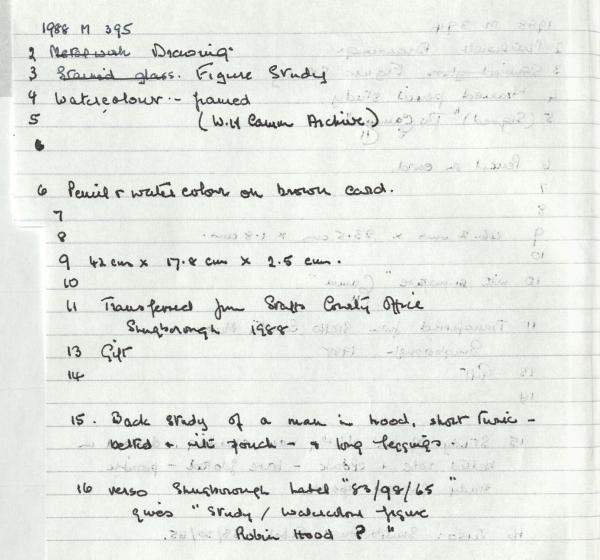 1988 M 395
2 Metalwork Drawing.
3 Stained glass. Figure Study
4 Watercolour - framed
5 (W.H Camm Archive)
6
6 Pencil & water colour on brown card.
7
8
9 42 cm x 17.8 cm x 2.5 cm.
10
11 Transferred from Staffs County Office
Shugborough 1988
13 Gift
14
15. Back study of a man in hood, short tunic -
belted & with pouch - & long leggings
16 verso Shugborough label "83/98/65"
gives "Study / watercolour figure
Robin Hood ? "